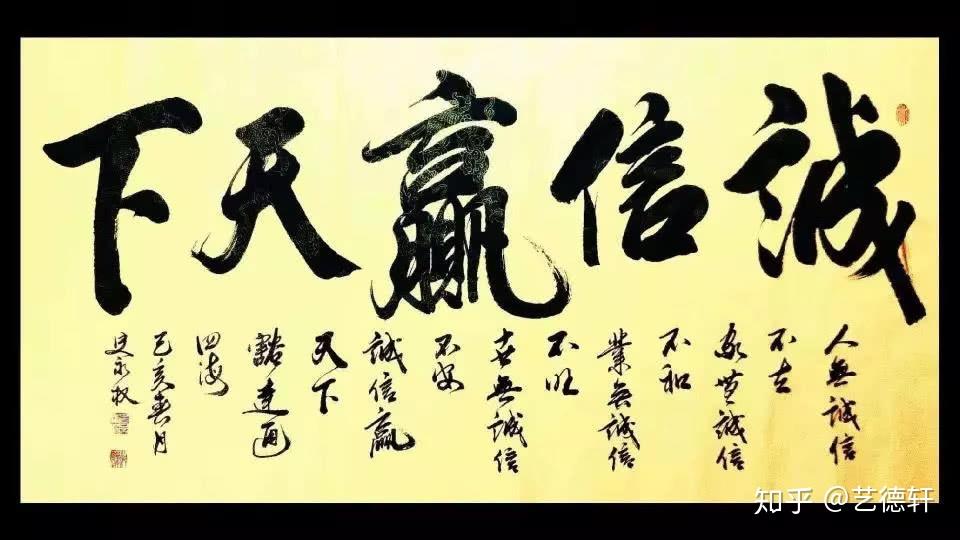 誠信贏天下
人無誠信
不立
家無誠信
不和
業無誠信
不旺
世無誠信
不安
誠信贏
天下
豁達通
四海
己亥春月
史永权
知乎 @艺德轩